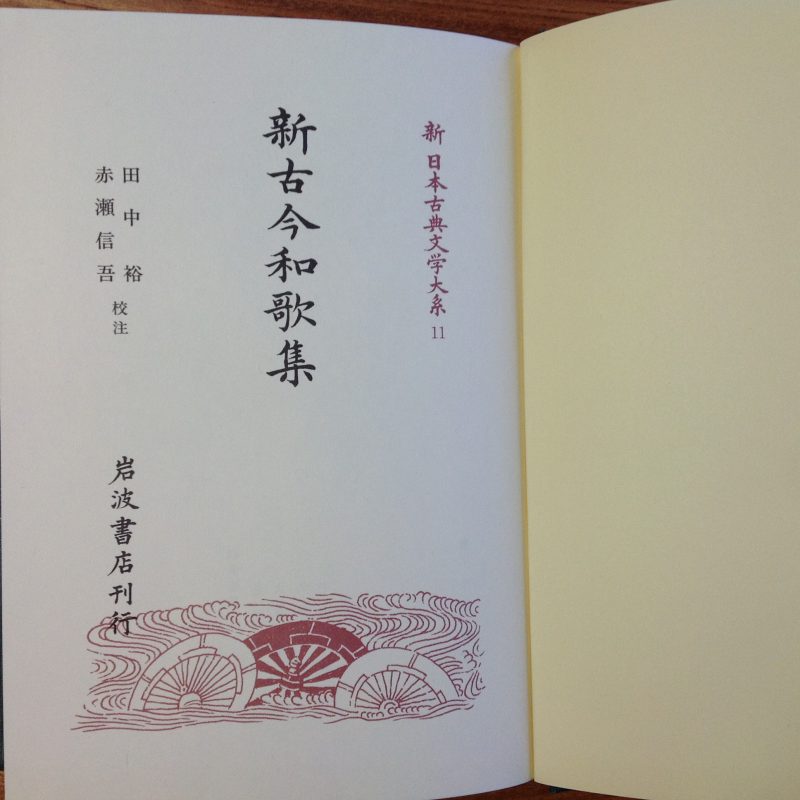 新 日本古典文学大系 11
新古今和歌集
田中 裕
赤瀬信吾
校注
岩波書店刊行